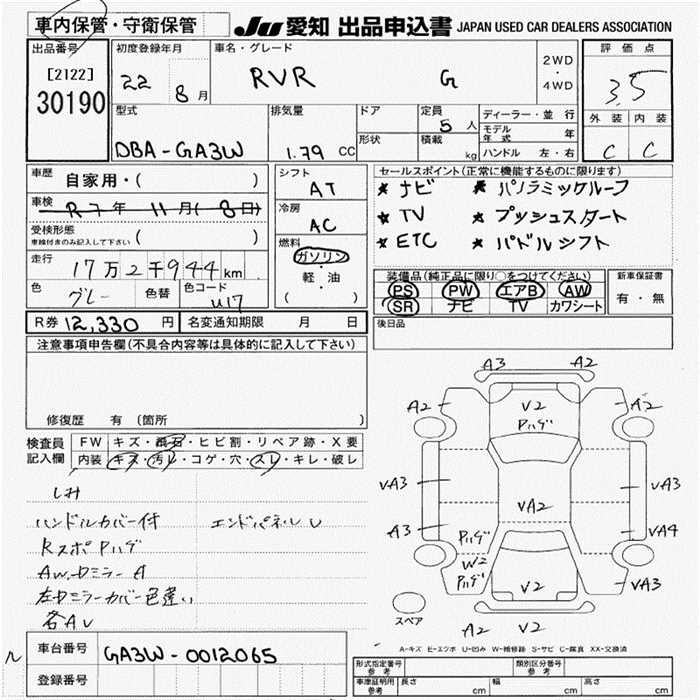 車内保管・守衛保管 JU 愛知 出品申込書 JAPAN USED CAR DEALERS ASSOCIATION
出品番号 初度登録年月 車名・グレード 評価点
[2122] 22 8月 RVR G 2WD・4WD 3.5
30190
型式 排気量 ドア 定員 5人 ディーラー・並行 外装 内装
形状 積載 kg モデル年式 年
DBA-GA3W 1.79 CC ハンドル 左・右 C C
車歴 自家用・( ) シフト AT セールスポイント(正常に機能するものに限ります)
車検 R7年 11月(8日) ★ナビ ★パノラミックルーフ
受検形態 ( ) 冷房 AC ★TV ★プッシュスタート
車検付きのみ記入して下さい ★ETC ★パドルシフト
走行 17万2千944km 燃料 ガソリン・軽・油 ( )
色 グレー 色替 色コード U17
装備品(純正品に限り○をつけてください) 新車保証書
PS PW エアB AW 有・無
SR ナビ TV カワシート
R券 12,330円 名変通知期限 月 日 後日品
注意事項申告欄(不具合内容等は具体的に記入して下さい)
修復歴 有 (箇所 )
検査員記入欄 FW キズ・飛石・ヒビ割・リペア跡・X要
内装 キズ・汚レ・コゲ・穴・スレ・キレ・破レ
シミ
ハンドルカバー付 エンドパネルU
RスポPハゲ
AW、ロミラーA
左ロミラーカバー色違い
各AU
A3 A2
A2 V2 A2
Pハゲ
VA3 VA2 VA3
A3 Pハゲ VA4
W2
Pハゲ V2 VA3
スペア A2 V2
A-キズ E-エクボ U-凹み W-補修跡 S-サビ C-腐食 XX-交換済
ル 車台番号 GA3W-0012065
登録番号
形式指定番号 参考 類別区分番号 参考
車庫証明用 参考 長さ cm 幅 cm 高さ cm